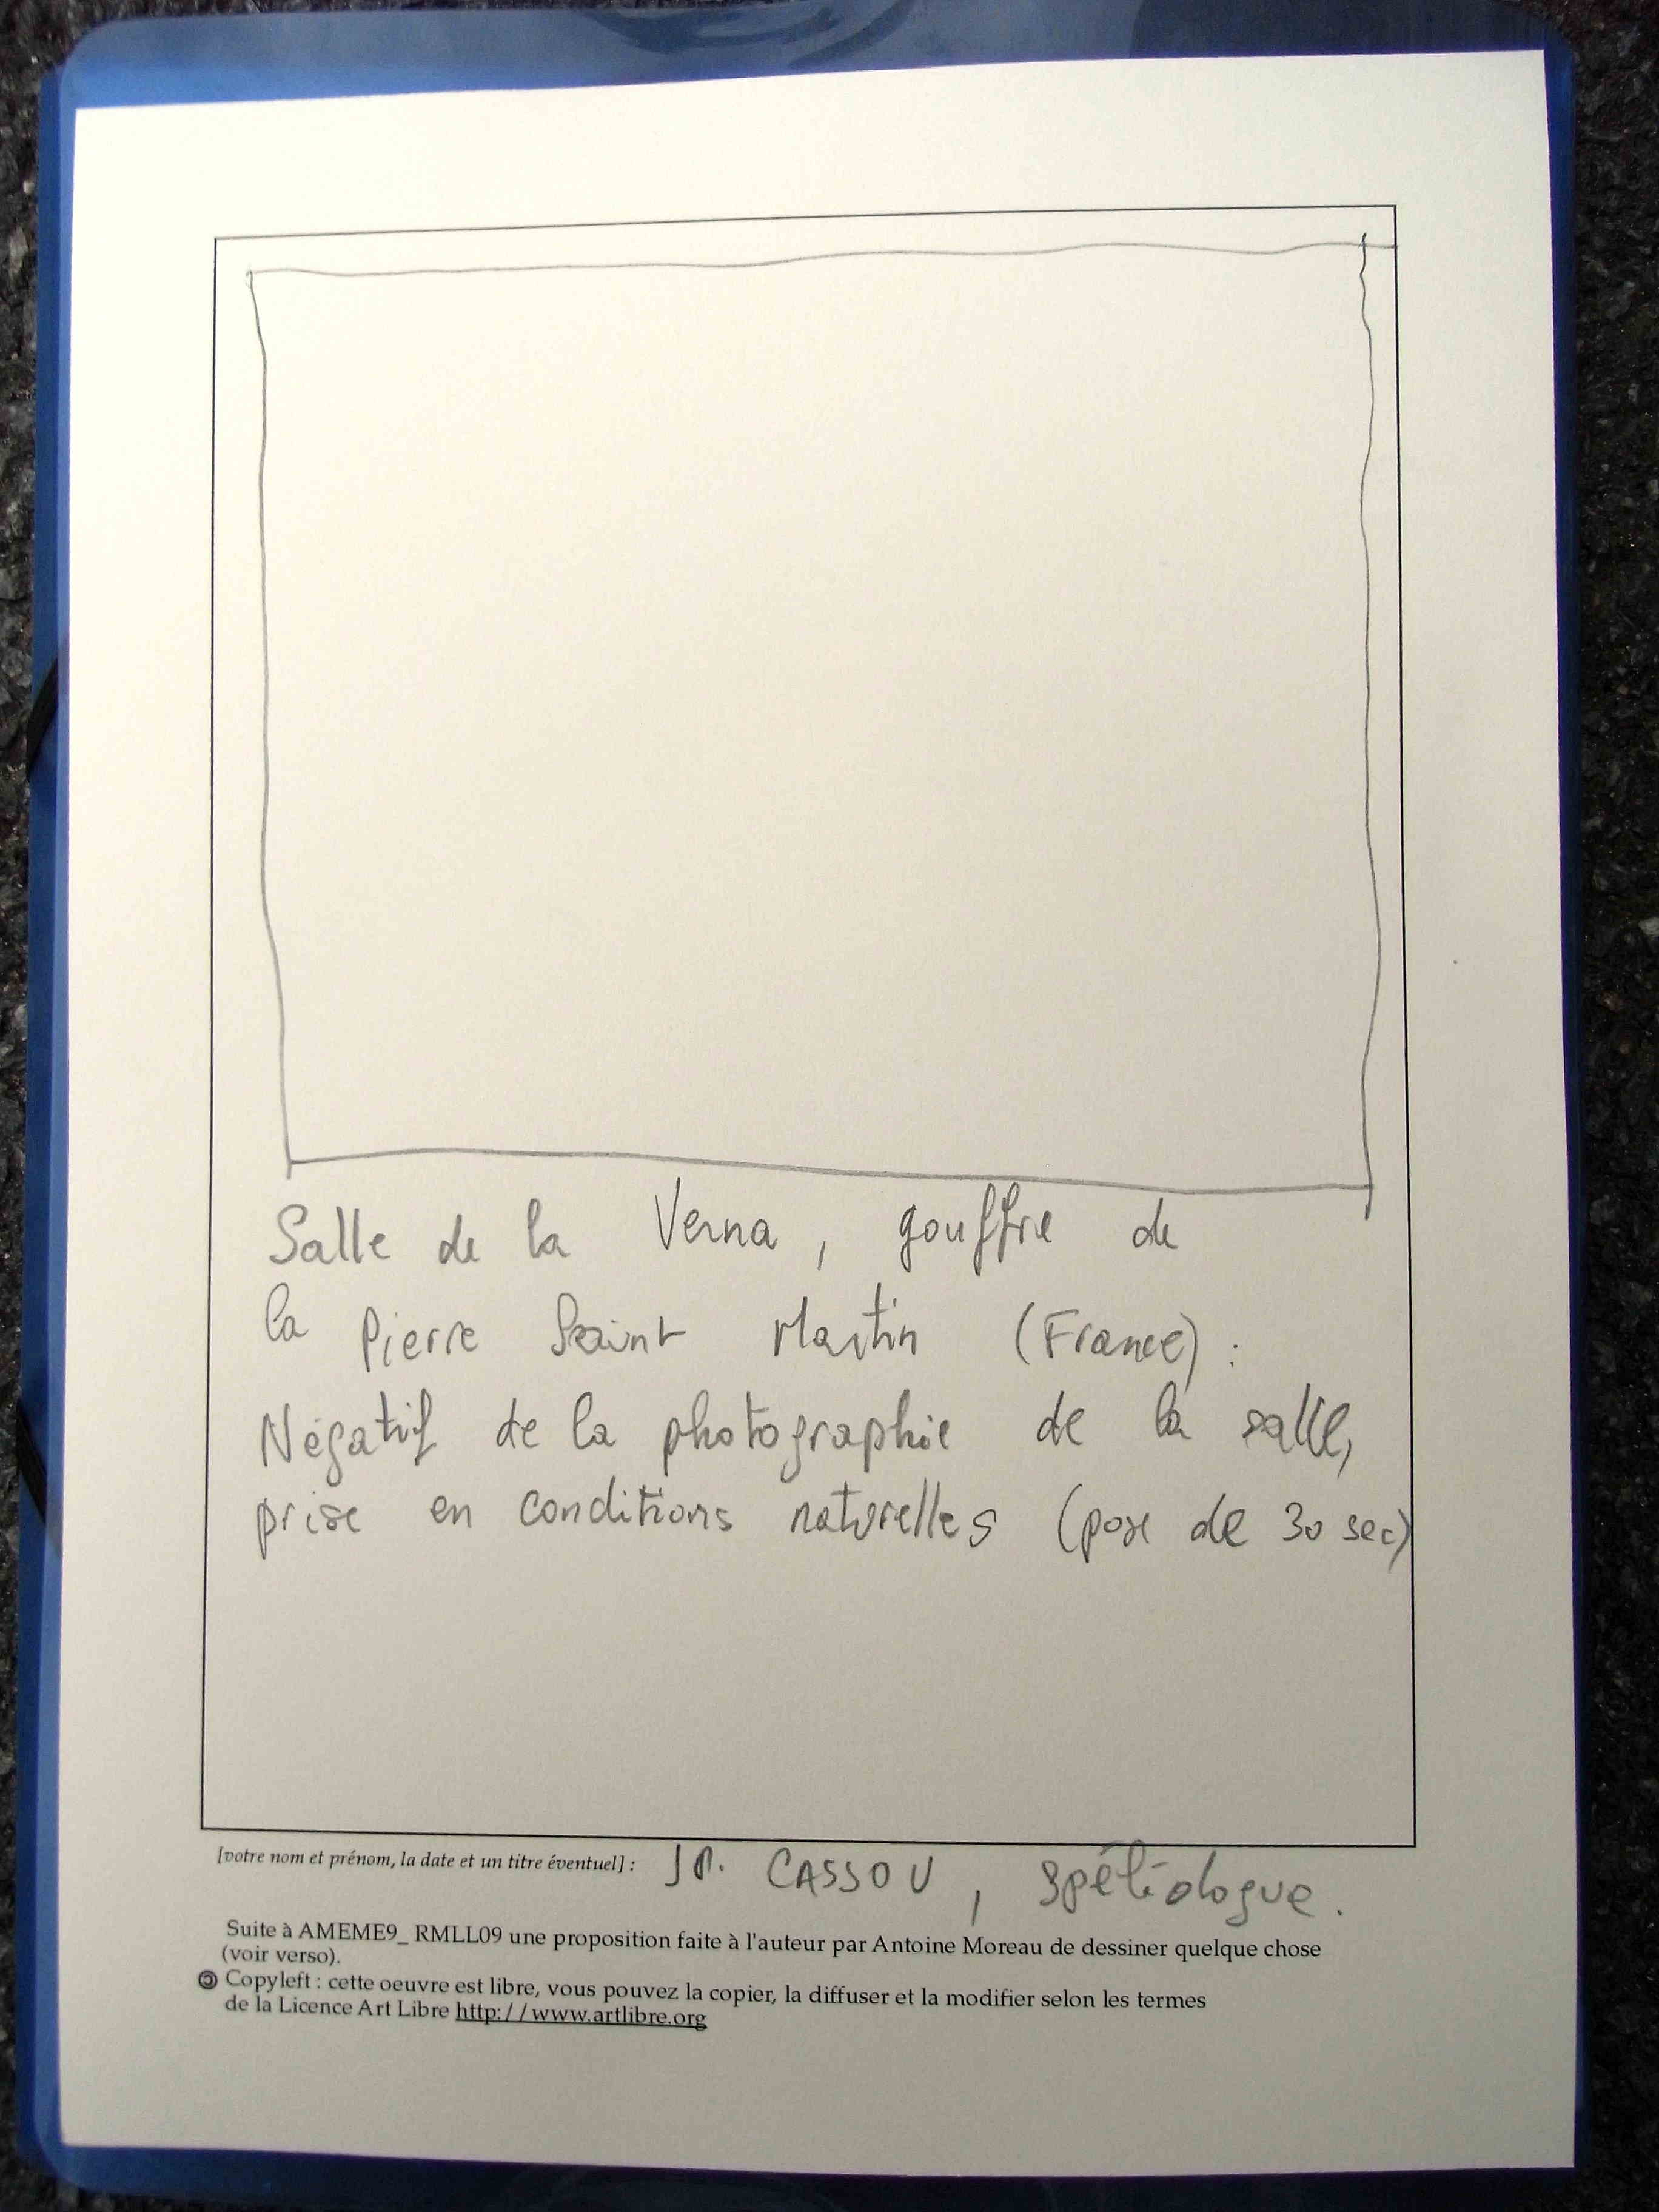 Salle de la Verna, gouffre de
la Pierre Saint Martin (France) :
Négatif de la photographie de la salle,
prise en conditions naturelles (pose de 30 sec)
[votre nom et prénom, la date et un titre éventuel] : JP. CASSOU, spéléologue.
Suite à AMEME9_ RMLL09 une proposition faite à l'auteur par Antoine Moreau de dessiner quelque chose
(voir verso).
Copyleft : cette oeuvre est libre, vous pouvez la copier, la diffuser et la modifier selon les termes
de la Licence Art Libre http://www.artlibre.org